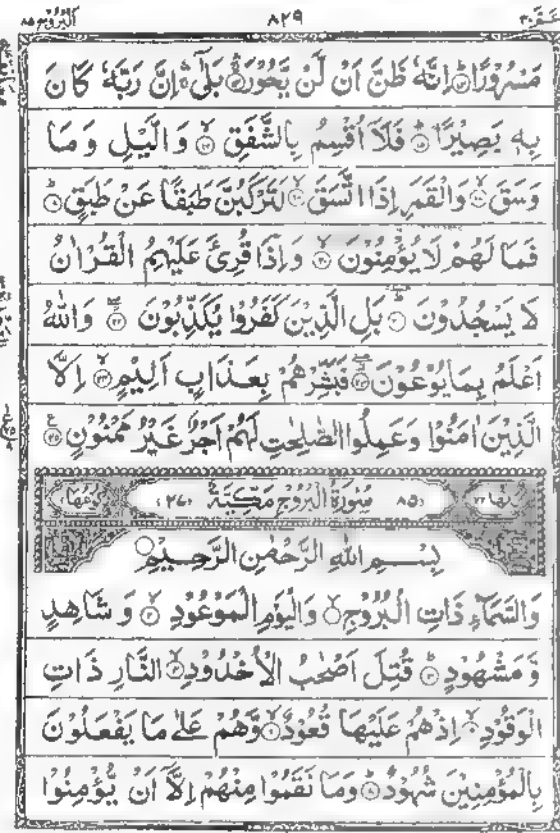 البروج ٨٥ ٨٢٩ عمّ ٣٠
مَسْرُوْرًا ؕ﴿۱۳﴾ اِنَّهٗ ظَنَّ اَنْ لَّنْ يَّحُوْرَ ۚ﴿۱۴﴾ بَلٰۤى ۚۛ اِنَّ رَبَّهٗ كَانَ
بِهٖ بَصِيْرًا ؕ﴿۱۵﴾ فَلَاۤ اُقْسِمُ بِالشَّفَقِ ۙ﴿۱۶﴾ وَالَّيْلِ وَمَا
وَسَقَ ۙ﴿۱۷﴾ وَالْقَمَرِ اِذَا اتَّسَقَ ۙ﴿۱۸﴾ لَتَرْكَبُنَّ طَبَقًا عَنْ طَبَقٍ ؕ﴿۱۹﴾
فَمَا لَهُمْ لَا يُؤْمِنُوْنَ ۙ﴿۲۰﴾ وَاِذَا قُرِئَ عَلَيْهِمُ الْقُرْاٰنُ
لَا يَسْجُدُوْنَ ؕ﴿۲۱﴾ بَلِ الَّذِيْنَ كَفَرُوْا يُكَذِّبُوْنَ ۖ﴿۲۲﴾ وَاللّٰهُ
اَعْلَمُ بِمَا يُوْعُوْنَ ۖ﴿۲۳﴾ فَبَشِّرْهُمْ بِعَذَابٍ اَلِيْمٍ ۙ﴿۲۴﴾ اِلَّا
الَّذِيْنَ اٰمَنُوْا وَعَمِلُوا الصّٰلِحٰتِ لَهُمْ اَجْرٌ غَيْرُ مَمْنُوْنٍ ﴿۲۵﴾
اٰيَاتُهَا ٢٢ (٨٥) سُوْرَةُ الْبُرُوْجِ مَكِّيَّةٌ (٢٧) رُكُوْعُهَا ١
بِسْمِ اللّٰهِ الرَّحْمٰنِ الرَّحِيْمِ
وَالسَّمَآءِ ذَاتِ الْبُرُوْجِ ۙ﴿۱﴾ وَالْيَوْمِ الْمَوْعُوْدِ ۙ﴿۲﴾ وَشَاهِدٍ
وَّمَشْهُوْدٍ ؕ﴿۳﴾ قُتِلَ اَصْحٰبُ الْاُخْدُوْدِ ۙ﴿۴﴾ النَّارِ ذَاتِ
الْوَقُوْدِ ۙ﴿۵﴾ اِذْ هُمْ عَلَيْهَا قُعُوْدٌ ۙ﴿۶﴾ وَّهُمْ عَلٰى مَا يَفْعَلُوْنَ
بِالْمُؤْمِنِيْنَ شُهُوْدٌ ؕ﴿۷﴾ وَمَا نَقَمُوْا مِنْهُمْ اِلَّاۤ اَنْ يُّؤْمِنُوْا